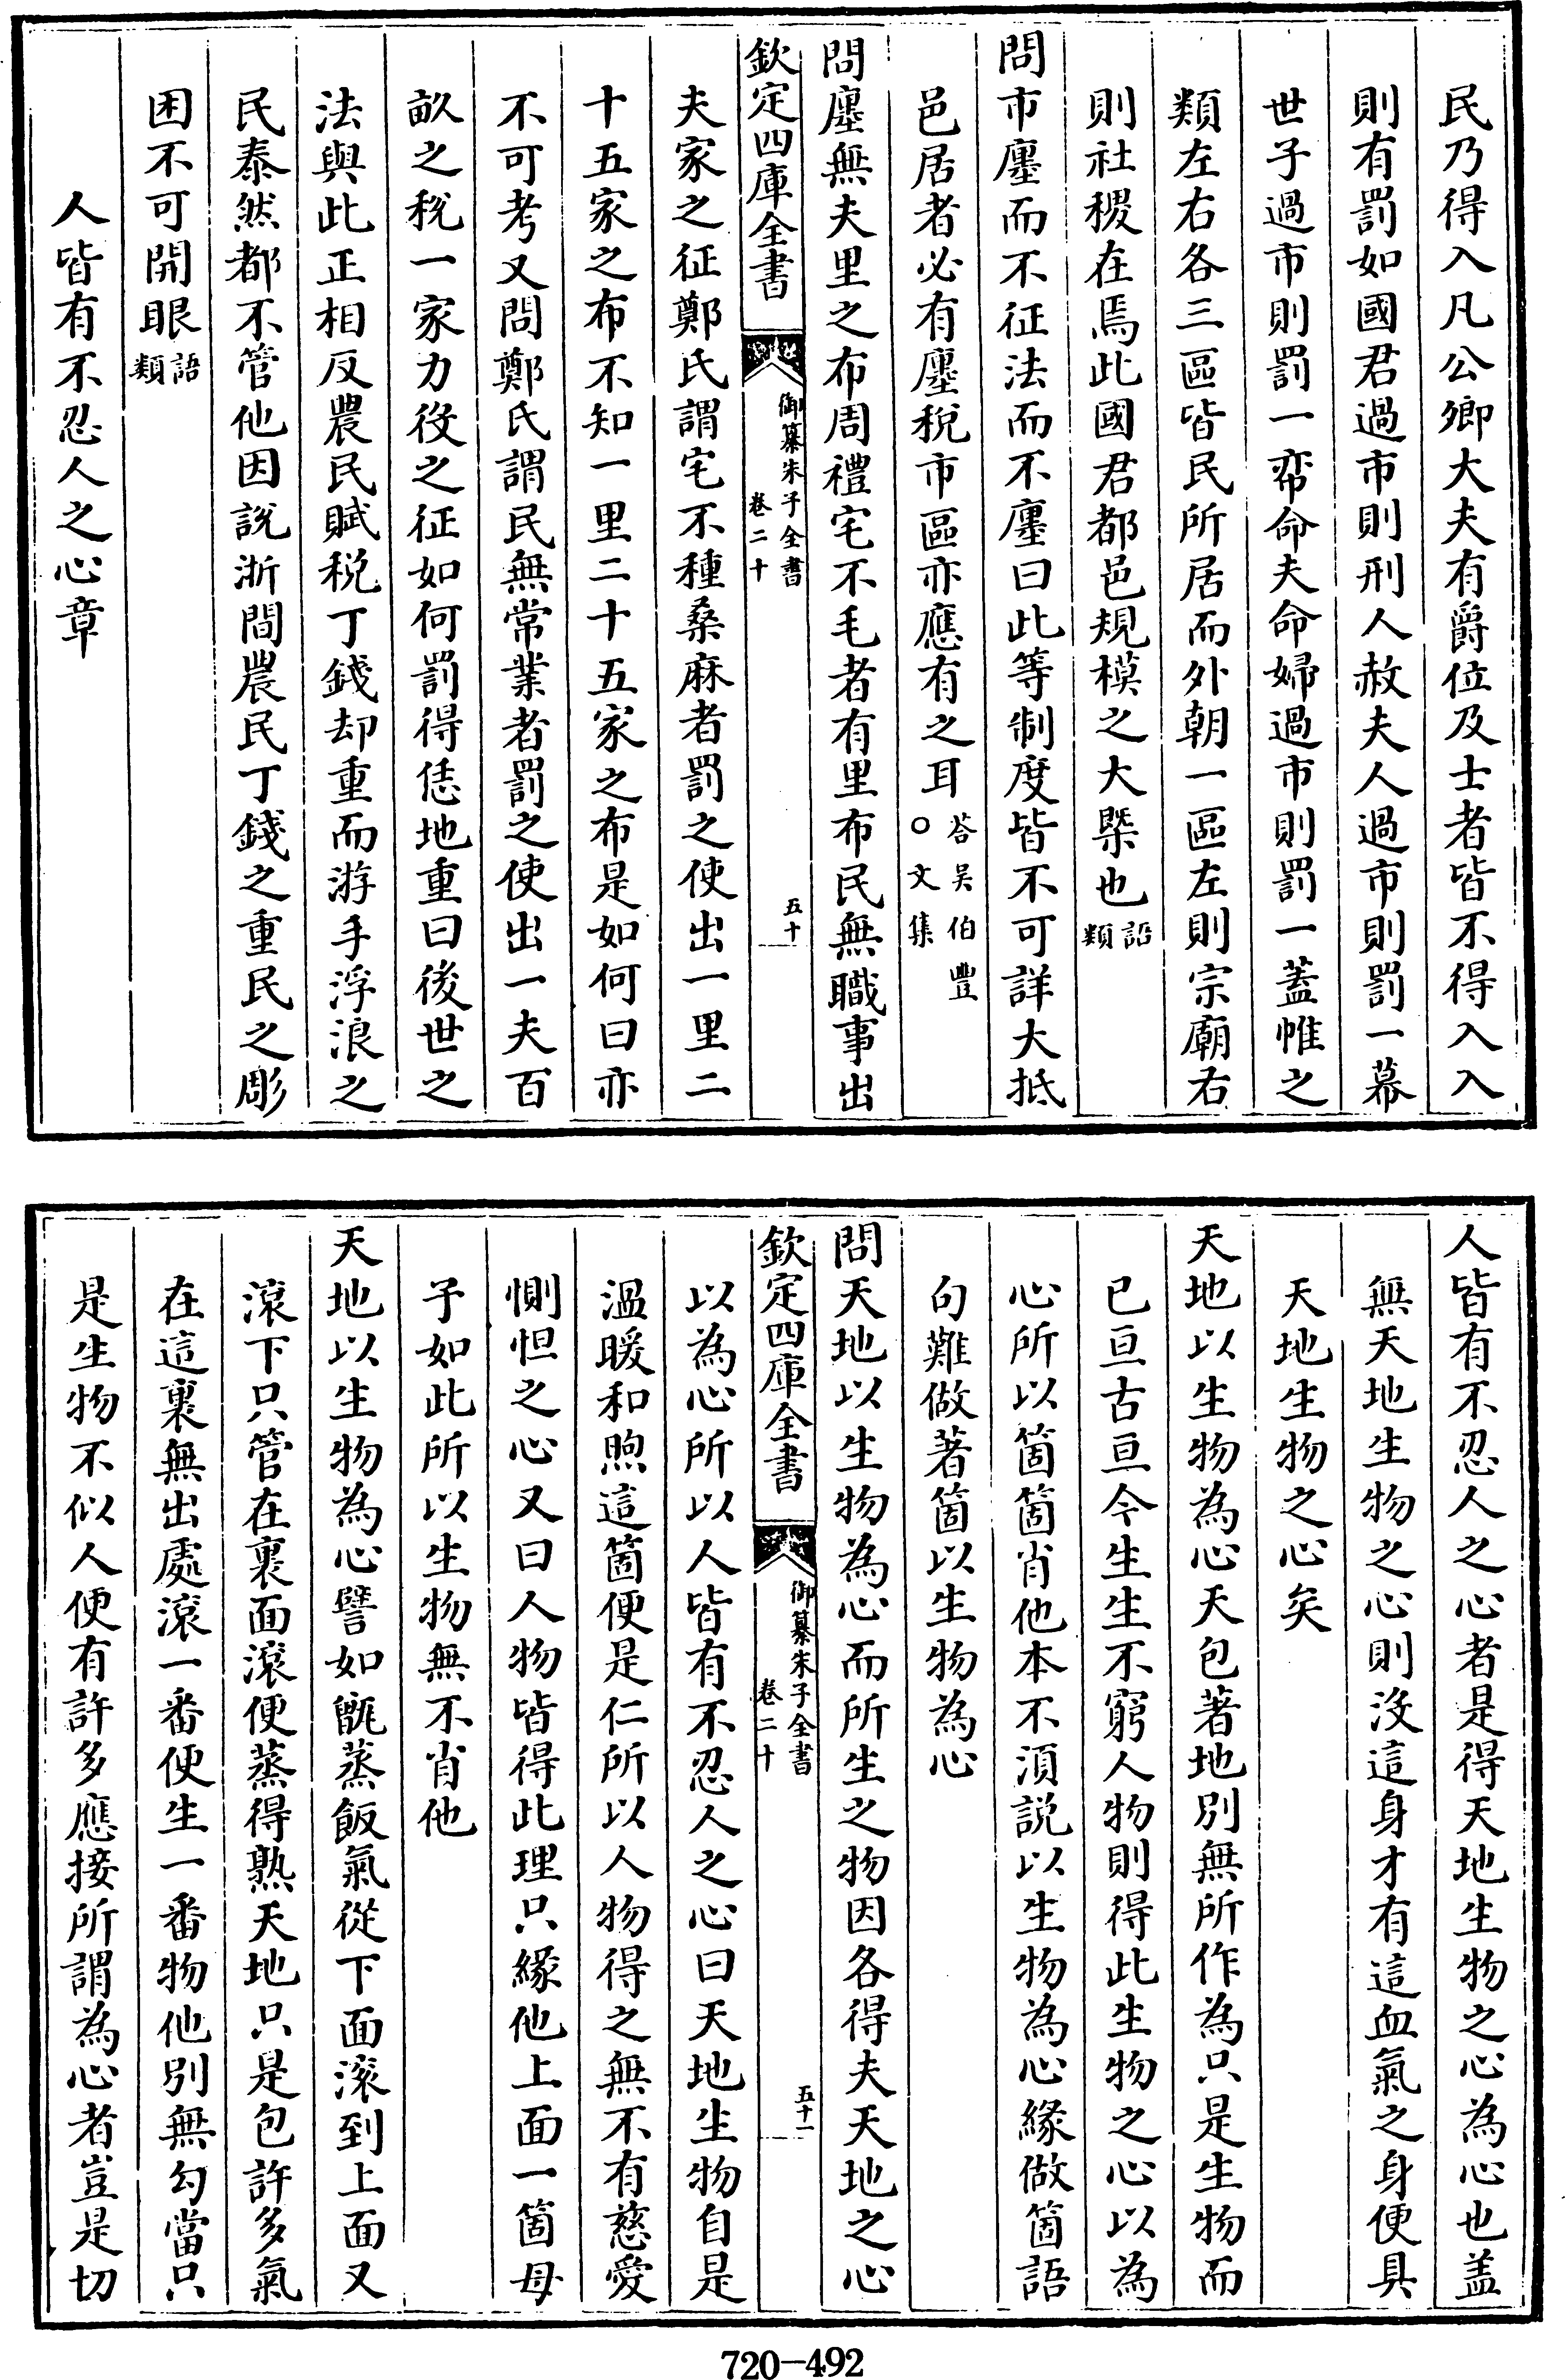 民乃得入凡公卿大夫有爵位及士者皆不得入入
則有罰如國君過市則刑人赦夫人過市則罰一幕
世子過市則罰一帟命夫命婦過市則罰一蓋帷之
類左右各三區皆民所居而外朝一區左則宗廟右
則社稷在焉此國君都邑規模之大槩也語類
問市廛而不征法而不廛曰此等制度皆不可詳大抵
邑居者必有廛稅市區亦應有之耳答吳伯豐○文集
問廛無夫里之布周禮宅不毛者有里布民無職事出
欽定四庫全書 御纂朱子全書 卷二十 五十
夫家之征鄭氏謂宅不種桑麻者罰之使出一里二
十五家之布不知一里二十五家之布是如何曰亦
不可考又問鄭氏謂民無常業者罰之使出一夫百
畝之稅一家力役之征如何罰得恁地重曰後世之
法與此正相反農民賦稅丁錢却重而游手浮浪之
民泰然都不管他因說浙間農民丁錢之重民之彫
困不可開眼語類
人皆有不忍人之心章
人皆有不忍人之心者是得天地生物之心為心也盖
無天地生物之心則沒這身才有這血氣之身便具
天地生物之心矣
天地以生物為心天包著地別無所作為只是生物而
已亘古亘今生生不窮人物則得此生物之心以為
心所以箇箇肖他本不須說以生物為心緣做箇語
句難做著箇以生物為心
問天地以生物為心而所生之物因各得夫天地之心
欽定四庫全書 御纂朱子全書 卷二十 五十一
以為心所以人皆有不忍人之心曰天地生物自是
溫暖和煦這箇便是仁所以人物得之無不有慈愛
惻怛之心又曰人物皆得此理只緣他上面一箇母
子如此所以生物無不肖他
天地以生物為心譬如甑蒸飯氣從下面滚到上面又
滾下只管在裏面滾便蒸得熟天地只是包許多氣
在這裏無出處滾一番便生一番物他別無勾當只
是生物不似人便有許多應接所謂為心者豈是切
720-492